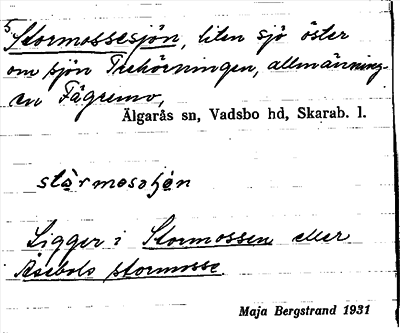 5 Stormossesjön, liten sjö öster
om sjön Trehörningen, allmänning-
en Fägremo,
Älgarås sn, Vadsbo hd, Skarab. l.
stòrmosaʃø̀n
Ligger i Stormossen eller
Åsebols stormosse.
Maja Bergstrand 1931